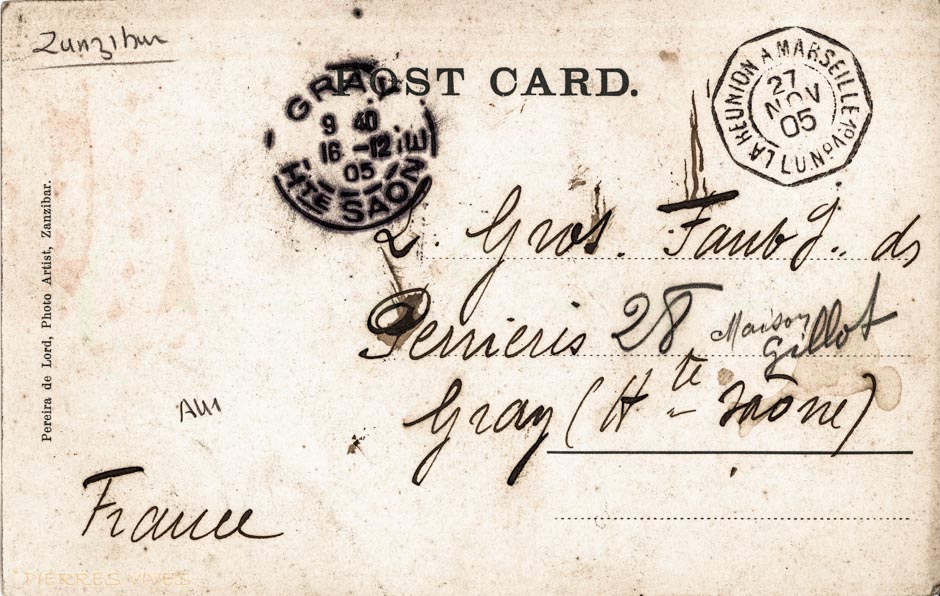 Zanzibar
POST CARD.
GRAY
9 40
16 -12
05
HTE SAONE
LA REUNION A MARSEILLE
27
NOV
05
L.U.Nº
Pereira de Lord, Photo Artist, Zanzibar.
L. Gros. Faubg.. ds
Perrieris 28 Maison
Gillot
Gray (Hte Saône)
France
PIERRES VIVES